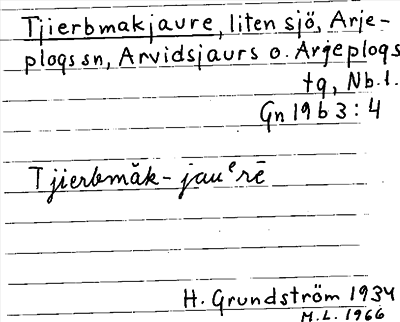 Tjierbmakjaure, liten sjö, Arje-
plogs sn, Arvidsjaurs o. Arjeplogs
tg, Nb.l.
Gn 19 b 3 : 4
Tjierbmăk - jauᵉrē
H. Grundström 1934
M.L. 1966